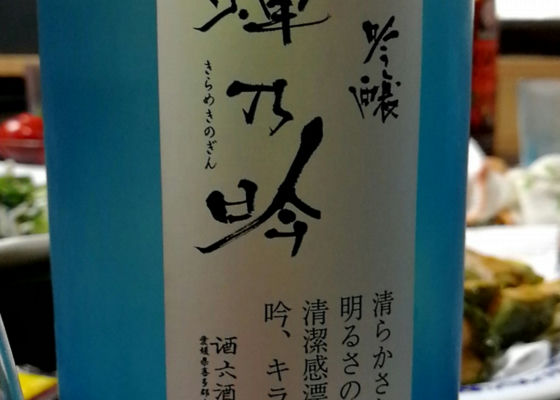 吟醸
輝乃吟
きらめきのぎん
清らかさ
明るさの
清潔感漂
吟、キラ
酒六酒
愛媛県喜多郡